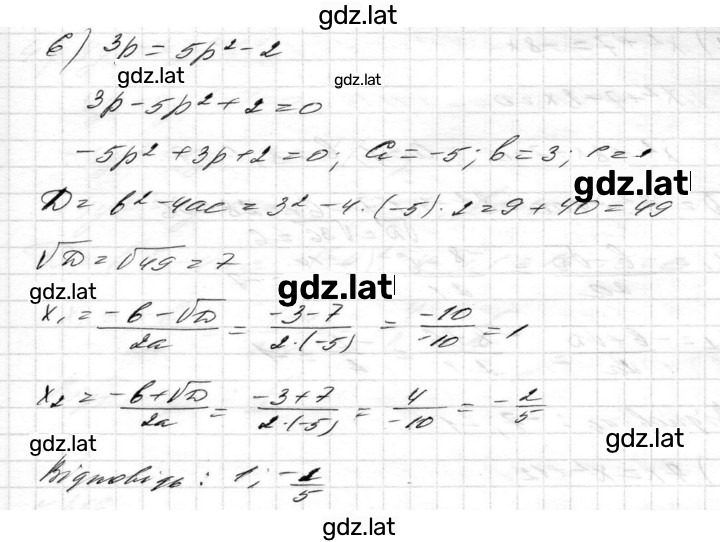 gdz.lat
6) 3p = 5p² - 2
gdz.lat gdz.lat
3p - 5p² + 2 = 0
-5p² + 3p + 2 = 0; a = -5; b = 3; c =
gdz.lat
D = b² - 4ac = 3² - 4·(-5)·2 = 9 + 40 = 49
√D = √49 = 7
gdz.lat gdz.lat
x₁ = (-b - √D)/(2a) = (-3 - 7)/(2·(-5)) = (-10)/(-10) = 1
x₂ = (-b + √D)/(2a) = (-3 + 7)/(2·(-5)) = 4/(-10) = -2/5
gdz.lat gdz.lat
Відповідь: 1; -2/5
gdz.lat